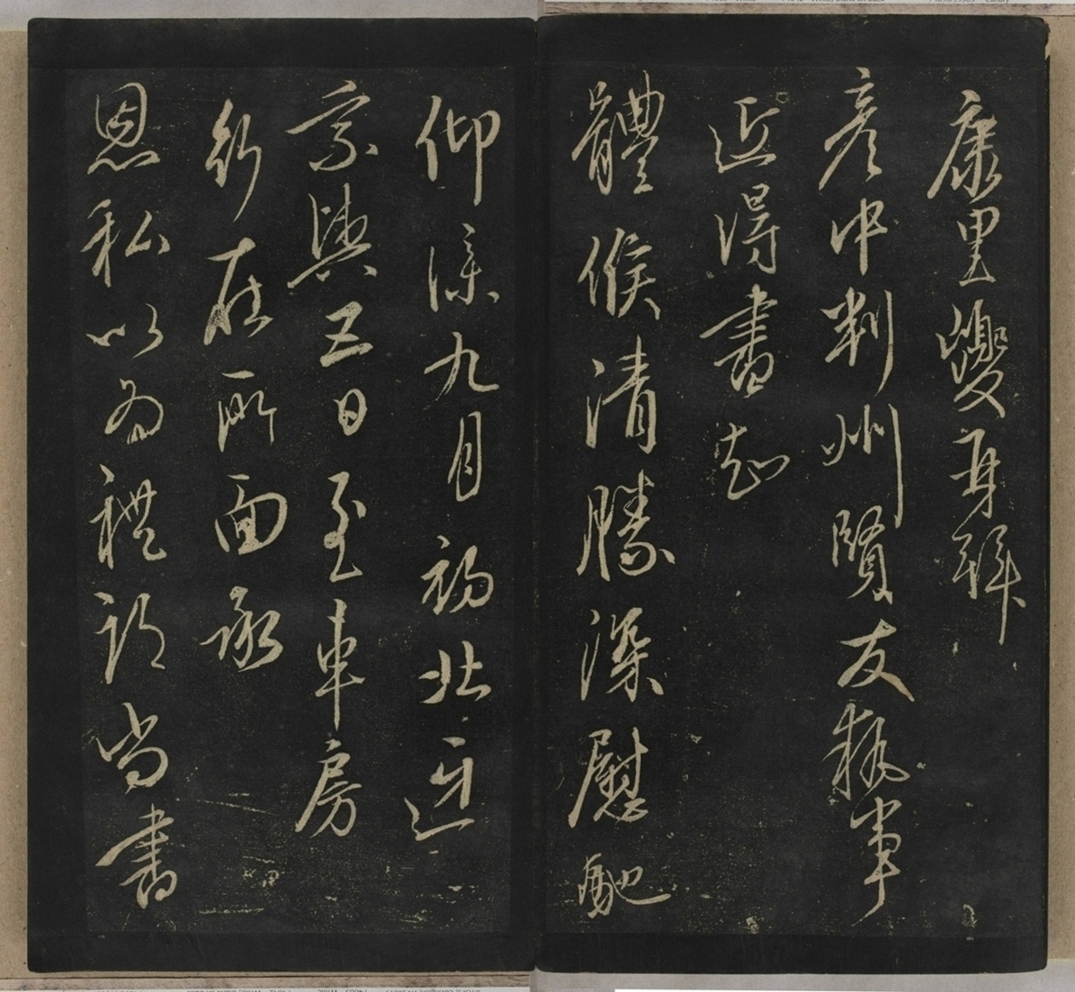 康里巎再拜
彥中判州賢友執事
近得書知
體候清勝深慰馳
仰九月初北迓
乘輿五日至車房
行在所面承
恩私以為禮部尚書